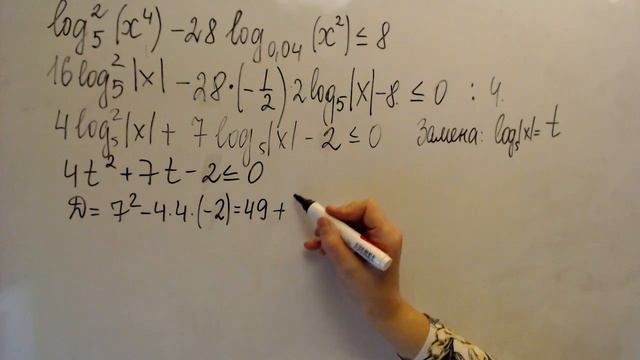 log₅²(x⁴) − 28 log₀,₀₄(x²) ≤ 8
16 log₅²|x| − 28·(−1/2)·2log₅|x| − 8 ≤ 0 : 4.
4 log₅²|x| + 7 log₅|x| − 2 ≤ 0 Замена: log₅|x| = t
4t² + 7t − 2 ≤ 0
D = 7² − 4·4·(−2) = 49 +